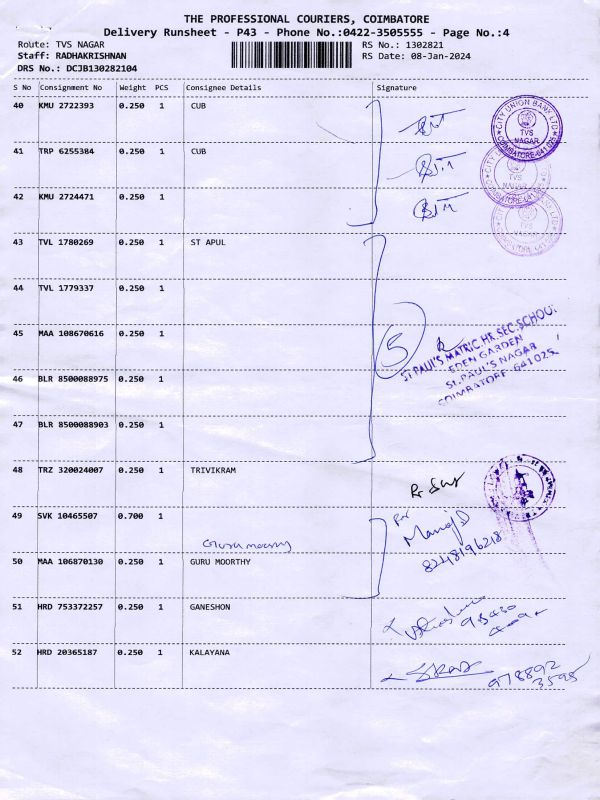 THE PROFESSIONAL COURIERS, COIMBATORE
Delivery Runsheet - P43 - Phone No.:0422-3505555 - Page No.:4
Route: TVS NAGAR
RS No.: 1302821
Staff: RADHAKRISHNAN
RS Date: 08-Jan-2024
DRS No.: DCJB130282104
S No Consignment No Weight PCS Consignee Details Signature
40 KMU 2722393 0.250 1 CUB
CITY UNION BANK LTD
TVS NAGAR
COIMBATORE-641 025
41 TRP 6255384 0.250 1 CUB
TVS NAGAR
42 KMU 2724471 0.250 1
TVS NAGAR
43 TVL 1780269 0.250 1 ST APUL
44 TVL 1779337 0.250 1
45 MAA 108670616 0.250 1
5
ST PAUL'S MATRIC.HR.SEC.SCHOOL
EDEN GARDEN
ST.PAUL'S NAGAR
COIMBATORE-641 025.
46 BLR 8500088975 0.250 1
47 BLR 8500088903 0.250 1
48 TRZ 320024007 0.250 1 TRIVIKRAM
49 SVK 10465507 0.700 1
Guru moorthy
for
Manoj
8248196218
50 MAA 106870130 0.250 1 GURU MOORTHY
51 HRD 753372257 0.250 1 GANESHON
52 HRD 20365187 0.250 1 KALAYANA
978892
3595